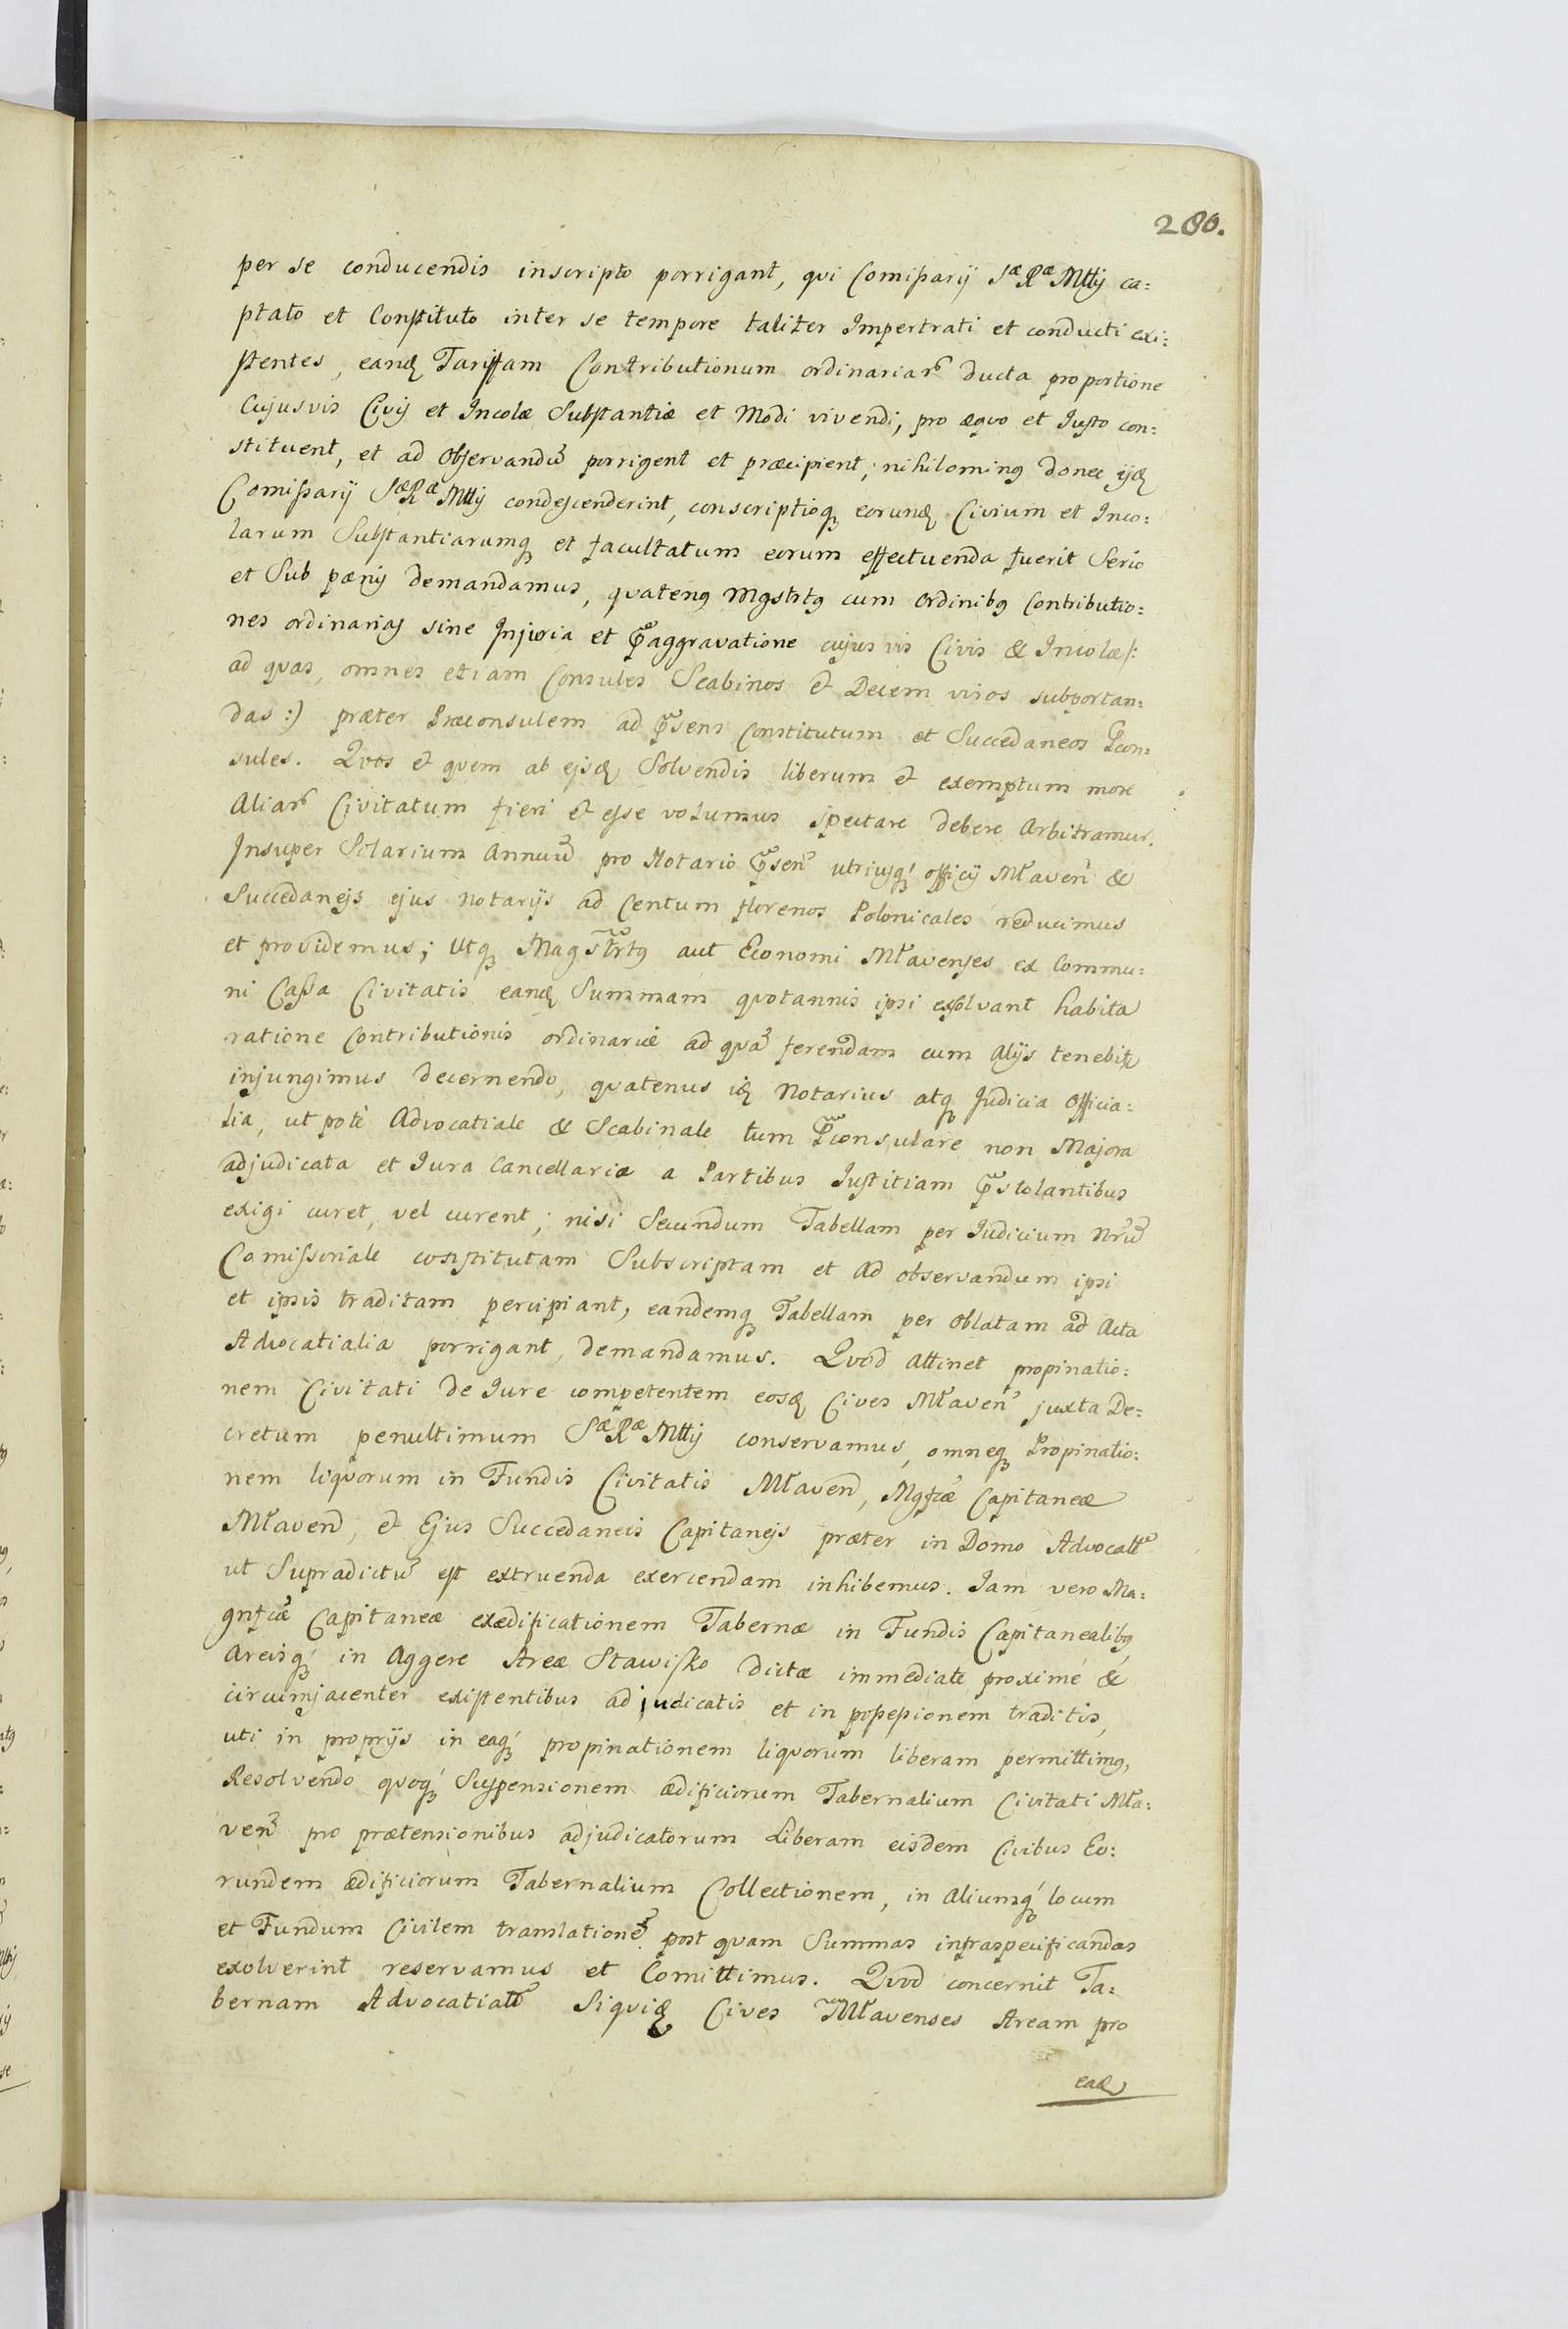 280.
per se conducendis inscripto porrigant, qvi Comissarij Sæ Ræ Mttij ca:
ptato et Constituto inter se tempore taliter Impertrati et conducti exi:
stentes, eandq Tariffam Contributionum ordinariar̃ ducta proportione
Cujusvis Civis et Incolæ Substantiæ et Modi vivendi, pro æqvo et Justo con:
stituent, et ad Observandũ porrigent et præcipient; nihilominq donec ijdq
Comissarij Sæ Ræ Mttij condescenderint, conscriptioq eorundq Civium et Inco:
larum Substantiarumq et facultatum eorum effectuenda fuerit Serio
et Sub pænis demandamus, qvatenq Mgstrtq cum Ordinibq Contributio:
nes ordinarias sine Injuria et p̃aggravatione cujus vis Civis & Incolæ /:
ad qvas, omnes etiam Consules Scabinos & Decem viros subportan:
das :) præter Præconsulem ad p̃sens Constitutum et Succedaneos P̃con:
sules. Qvos & qvem ab ejsdq Solvendis liberum & exemptum more
Aliar̃ Civitatum fieri & esse volumus spectare debere Arbitramur.
Insuper Solarium Annuũ pro Notario p̃sen̄ utriusq́ officij Mławen̄ &
Succedanejs ejus Notarijs ad Centum florenos Polonicales reducimus
et providemus; Utq Magstrtq aut Economi Mławenses ex Commu:
ni Cassa Civitatis eandq Summam qvotannis ipsi exolvant habita
ratione Contributionis ordinariæ ad qvã ferendam cum Alijs tenebitr
injungimus decernendo, qvatenus idq Notarius atq Judicia Officia:
lia, ut potè Advocatiale & Scabinale tum P̃consulare non Majora
adjudicata et Jura Cancellariæ a Partibus Justitiam p̃stolantibus
exigi curet, vel curent; nisi Secundum Tabellam per Judicium Nrũ
Comissoriale constitutam Subscriptam et Ad observandum ipsi
et ipsis traditam percipiant, eandemq Tabellam per Oblatam ad Acta
Advocatialia porrigant, demandamus. Qvod Attinet propinatio:
nem Civitati de Jure competentem eosdq Cives Mławen̄ juxta De:
cretum penultimum Sæ Ræ Mttij conservamus, omneq Propinatio:
nem liqvorum in Fundis Civitatis Mławen̄, Mgfcæ Capitaneæ
Mławen̄, & Ejus Succedaneis Capitanejs præter in Domo Advocatt̄
ut Supradictũ est extruenda exercendam inhibemus. Jam vero Ma:
gnfcæ Capitaneæ exædificationem Tabernæ in Fundis Capitanealibq
Areisq́ in Aggere Areæ Stawisko dictæ immediatè proximè &
circumjacenter existentibus adjudicatis et in possessionem traditis,
uti in proprijs in eaq́ propinationem liqvorum liberam permittimq,
Resolvendo qvoq́ Suspensionem ædificiorum Tabernalium Civitati Mła:
ven̄ pro prætensionibus adjudicatorum Liberam eisdem Civibus Eo:
rundem ædificiorum Tabernalium Collectionem, in Aliumq́ locum
et Fundum Civilem translationẽ post qvam Summas infraspecificandas
exolverint reservamus et Comittimus. Qvod concernit Ta:
bernam Advocatialẽ Siqvidq Cives Mławenses Aream pro
eadq